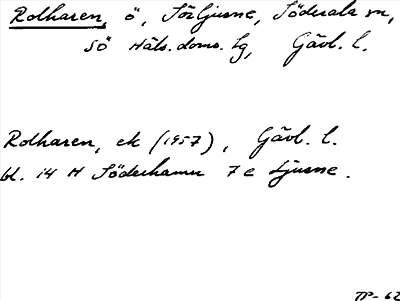 Rolharen, ö, Sörljusne, Söderala sn,
SÖ Häls. doms. lg, Gävl. l.
Rolharen, ek (1957), Gävl. l.
bl. 14 H Söderhamn 7 e Ljusne.
TP-62